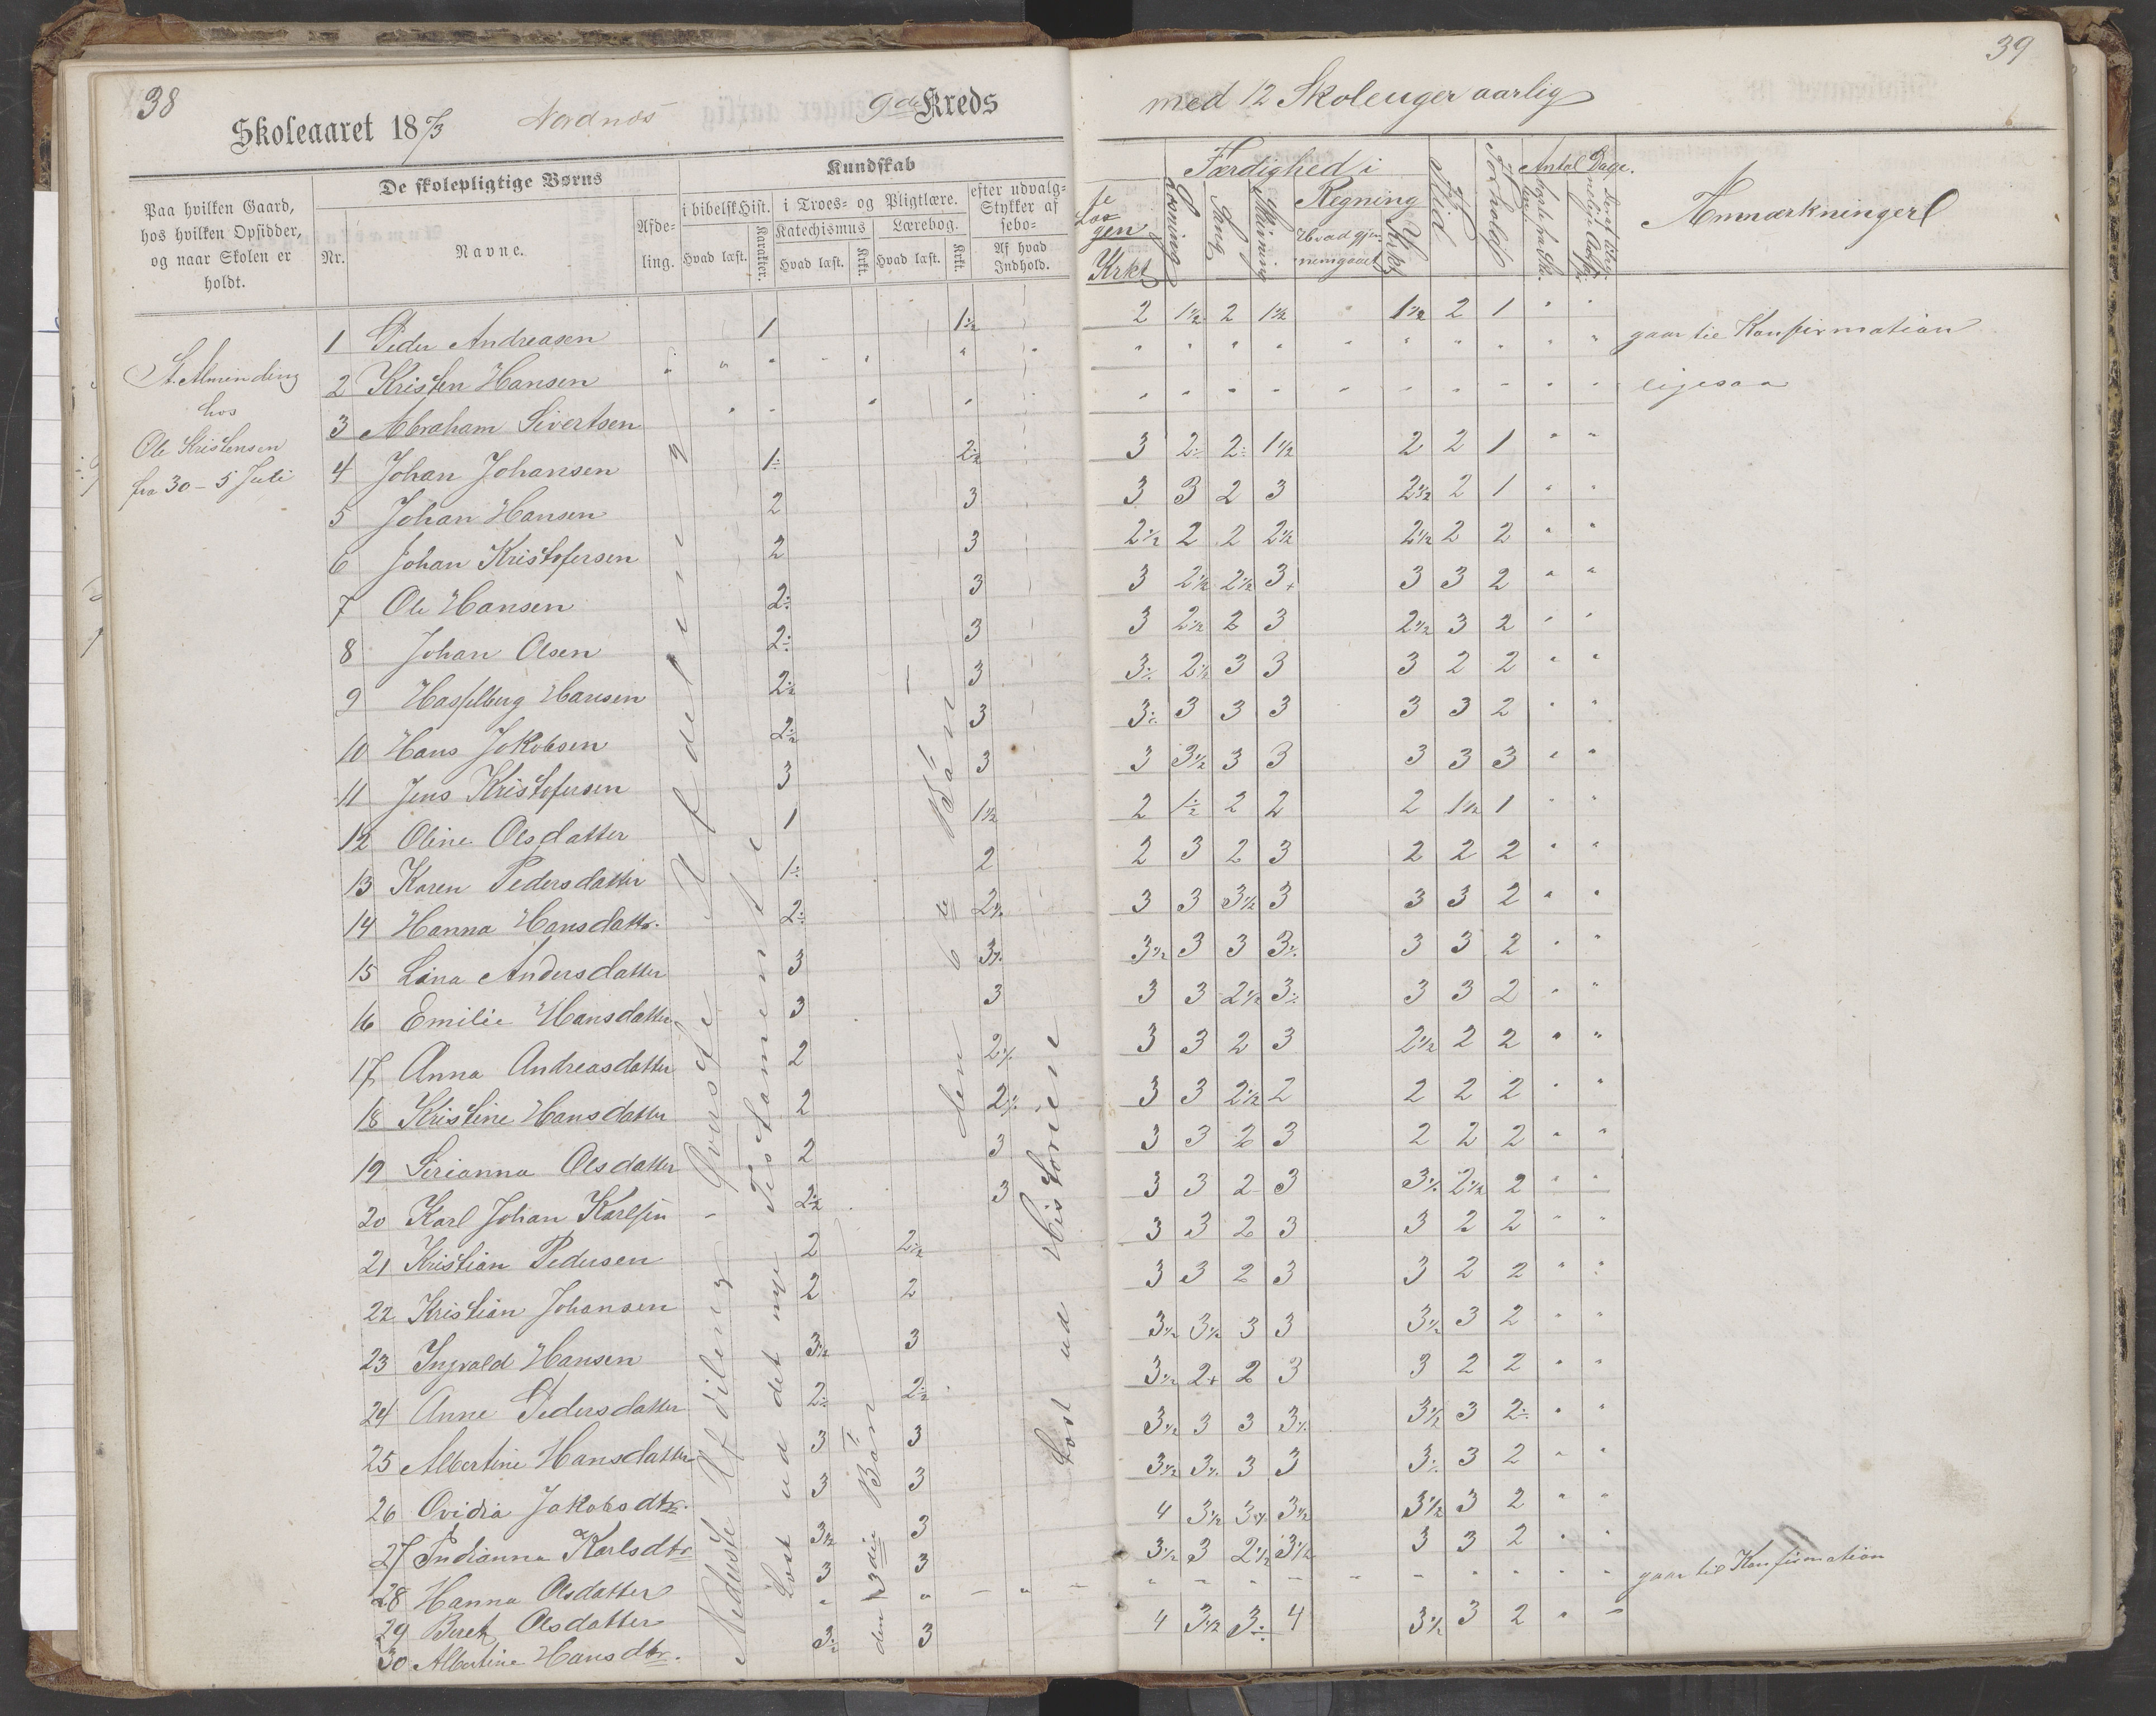 38
Skoleaaret 18 7/3 Nordnæs 9de Kreds
Paa hvilken Gaard, hos hvilken Opsidder, og naar Skolen er holdt.
De skolepligtige Børns
Nr. Navne.
Afde-ling.
Kundskab
i bibelsk Hist. i Troes- og Pligtlære. efter udvalg-
Stykker af
Katechismus Lærebog.
Hvad læst. Karakter. Hvad læst. Krkt. Hvad læst. Krkt. Af hvad Indhold.
St. Almending
hos
Ole Kristensen
fra 30 - 5 Juli
1 Peder Andreasen 1 1½
2 Kristen Hansen " " " " " "
3 Abraham Sivertsen " " " "
4 Johan Johansen 1÷ 2½
5 Johan Hansen 2 3
6 Johan Kristofersen 2 3
7 Ole Hansen 2÷ 3
8 Johan Olsen 2÷ 3
9 Hasselberg Hansen 2½ 3
10 Hans Jakobsen 2½ 3
11 Jens Kristofersen 3 3
12 Oline Olsdatter 1 1½
13 Karen Pedersdatter 1÷ 2
14 Hanna Hansdattr. 2÷ 2½
15 Lina Andersdatter 3 3½
16 Emilie Hansdatter 3 3
17 Anna Andreasdatter 2 2½
18 Kristine Hansdatter 2 2½
19 Sirianna Olsdatter 2 3
20 Karl Johan Karlsen 2½ 3
21 Kristian Pedersen 2 2½
22 Kristian Johansen 2 2
23 Ingvald Hansen 3½ 3
24 Anne Pedersdatter 2÷ 2½
25 Albertine Hansdatter 3 3
26 Ovidia Jakobsdtr. 3 3
27 Indianna Karlsdtr 3½ 3
28 Hanna Olsdatter 3 3
29 Beret Olsdatter " "
30 Albertine Hansdtr. 3½ 3
Øverste Afdeling
Nederste Afdeling
Læst ud det nye Testamente
den 6te Bøn
den 3die Bøn
Læst ud Historiene
39
med 12 Skoleuger aarlig
Færdighed i
Krkt Læsning Sang Skrivning Regning Hvad gjennemgaaet Krkt. Flid Forhold Antal Dage. Anmærkninger
2 1½ 2 1½ " 1½ 2 1 " "
" " " " " " " " " " gaar til Konfirmation
" " " " " " " " " " ligesaa
3 2÷ 2÷ 1½ 2 2 1 " "
3 3 2 3 2½ 2 1 " "
2½ 2 2 2½ 2½ 2 2 " "
3 2½ 2½ 3+ 3 3 2 " "
3 2½ 2 3 2½ 3 2 " "
3÷ 2½ 3 3 3 2 2 " "
3÷ 3 3 3 3 3 2 " "
3 3½ 3 3 3 3 3 " "
2 1½ 2 2 2 1½ 1 " "
2 3 2 3 2 2 2 " "
3 3 3½ 3 3 3 2 " "
3½ 3 3 3÷ 3 3 2 " "
3 3 2½ 3÷ 3 3 2 " "
3 3 2 3 2½ 2 2 " "
3 3 2½ 2 2 2 2 " "
3 3 2 3 2 2 2 " "
3 3 2 3 3½ 2½ 2 " "
3 3 2 3 3 2 2 " "
3 3 2 3 3 2 2 " "
3½ 3½ 3 3 3½ 3 2 " "
3½ 2+ 2 3 3 2 2 " "
3½ 3 3 3½ 3½ 3 2÷ " "
3½ 3½ 3 3 3÷ 3 2 " "
4 3½ 3½ 3½ 3½ 3 2 " "
3½ 3 2½ 3½ 3 3 2 " "
" " " " " " " " " " gaar til Konfirmation
4 3½ 3÷ 4 3½ 3 2 " "